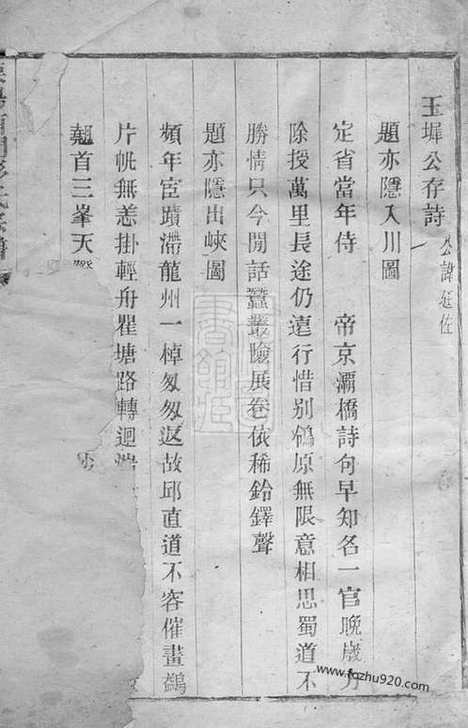 玉墀公存詩 公諱廷佐
題亦隱入川圖
定省當年侍 帝京灞橋詩句早知名一官晚歲方
除授萬里長途仍遠行惜別鴒原無限意相思蜀道不
勝情只今閒話蠶叢險展卷依稀鈴鐸聲
題亦隱出峽圖
頻年宦蹟滯龍州一棹匆匆返故邱直道不容催畫鷁
片帆無恙掛輕舟瞿塘路轉迴
翹首三峯天
www.fozhu920.com